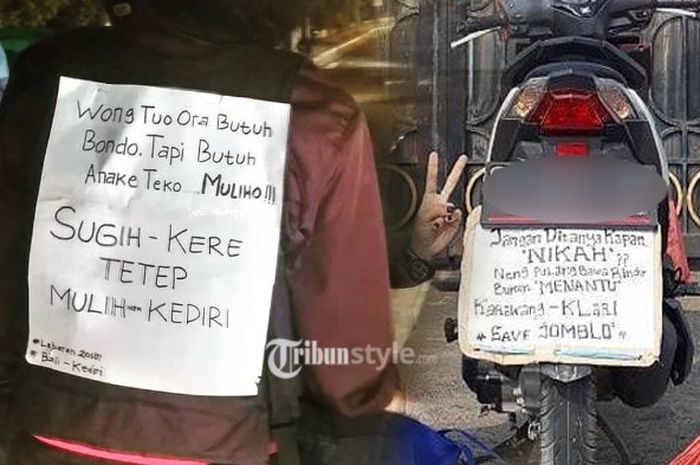 Wong Tuo Ora Butuh
Bondo. Tapi Butuh
Anake Teko .... Muliho !!!
Sugih - Kere
Tetep
Mulih Kediri
# Lebaran 2018!!
# Bali - Kediri
Tribunstyle.com
Jangan Ditanya Kapan
"NIKAH" ??
Neng Pulang Bawa Rindu
Bukan "MENANTU"
Karawang - KLARI
# SAVE JOMBLO"